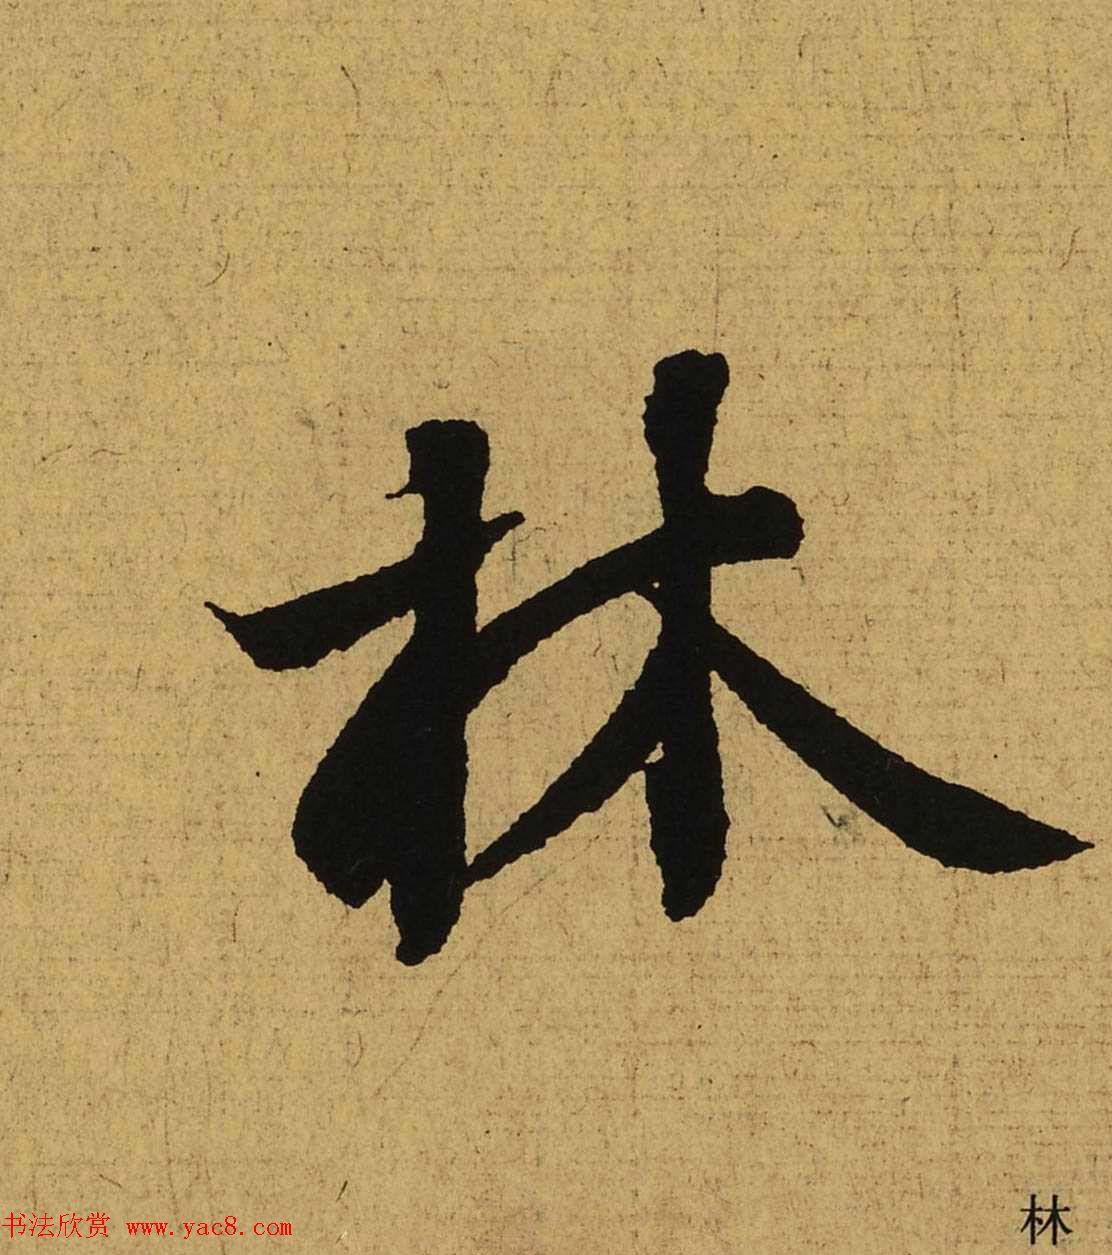 林
书法欣赏 www.yac8.com
林